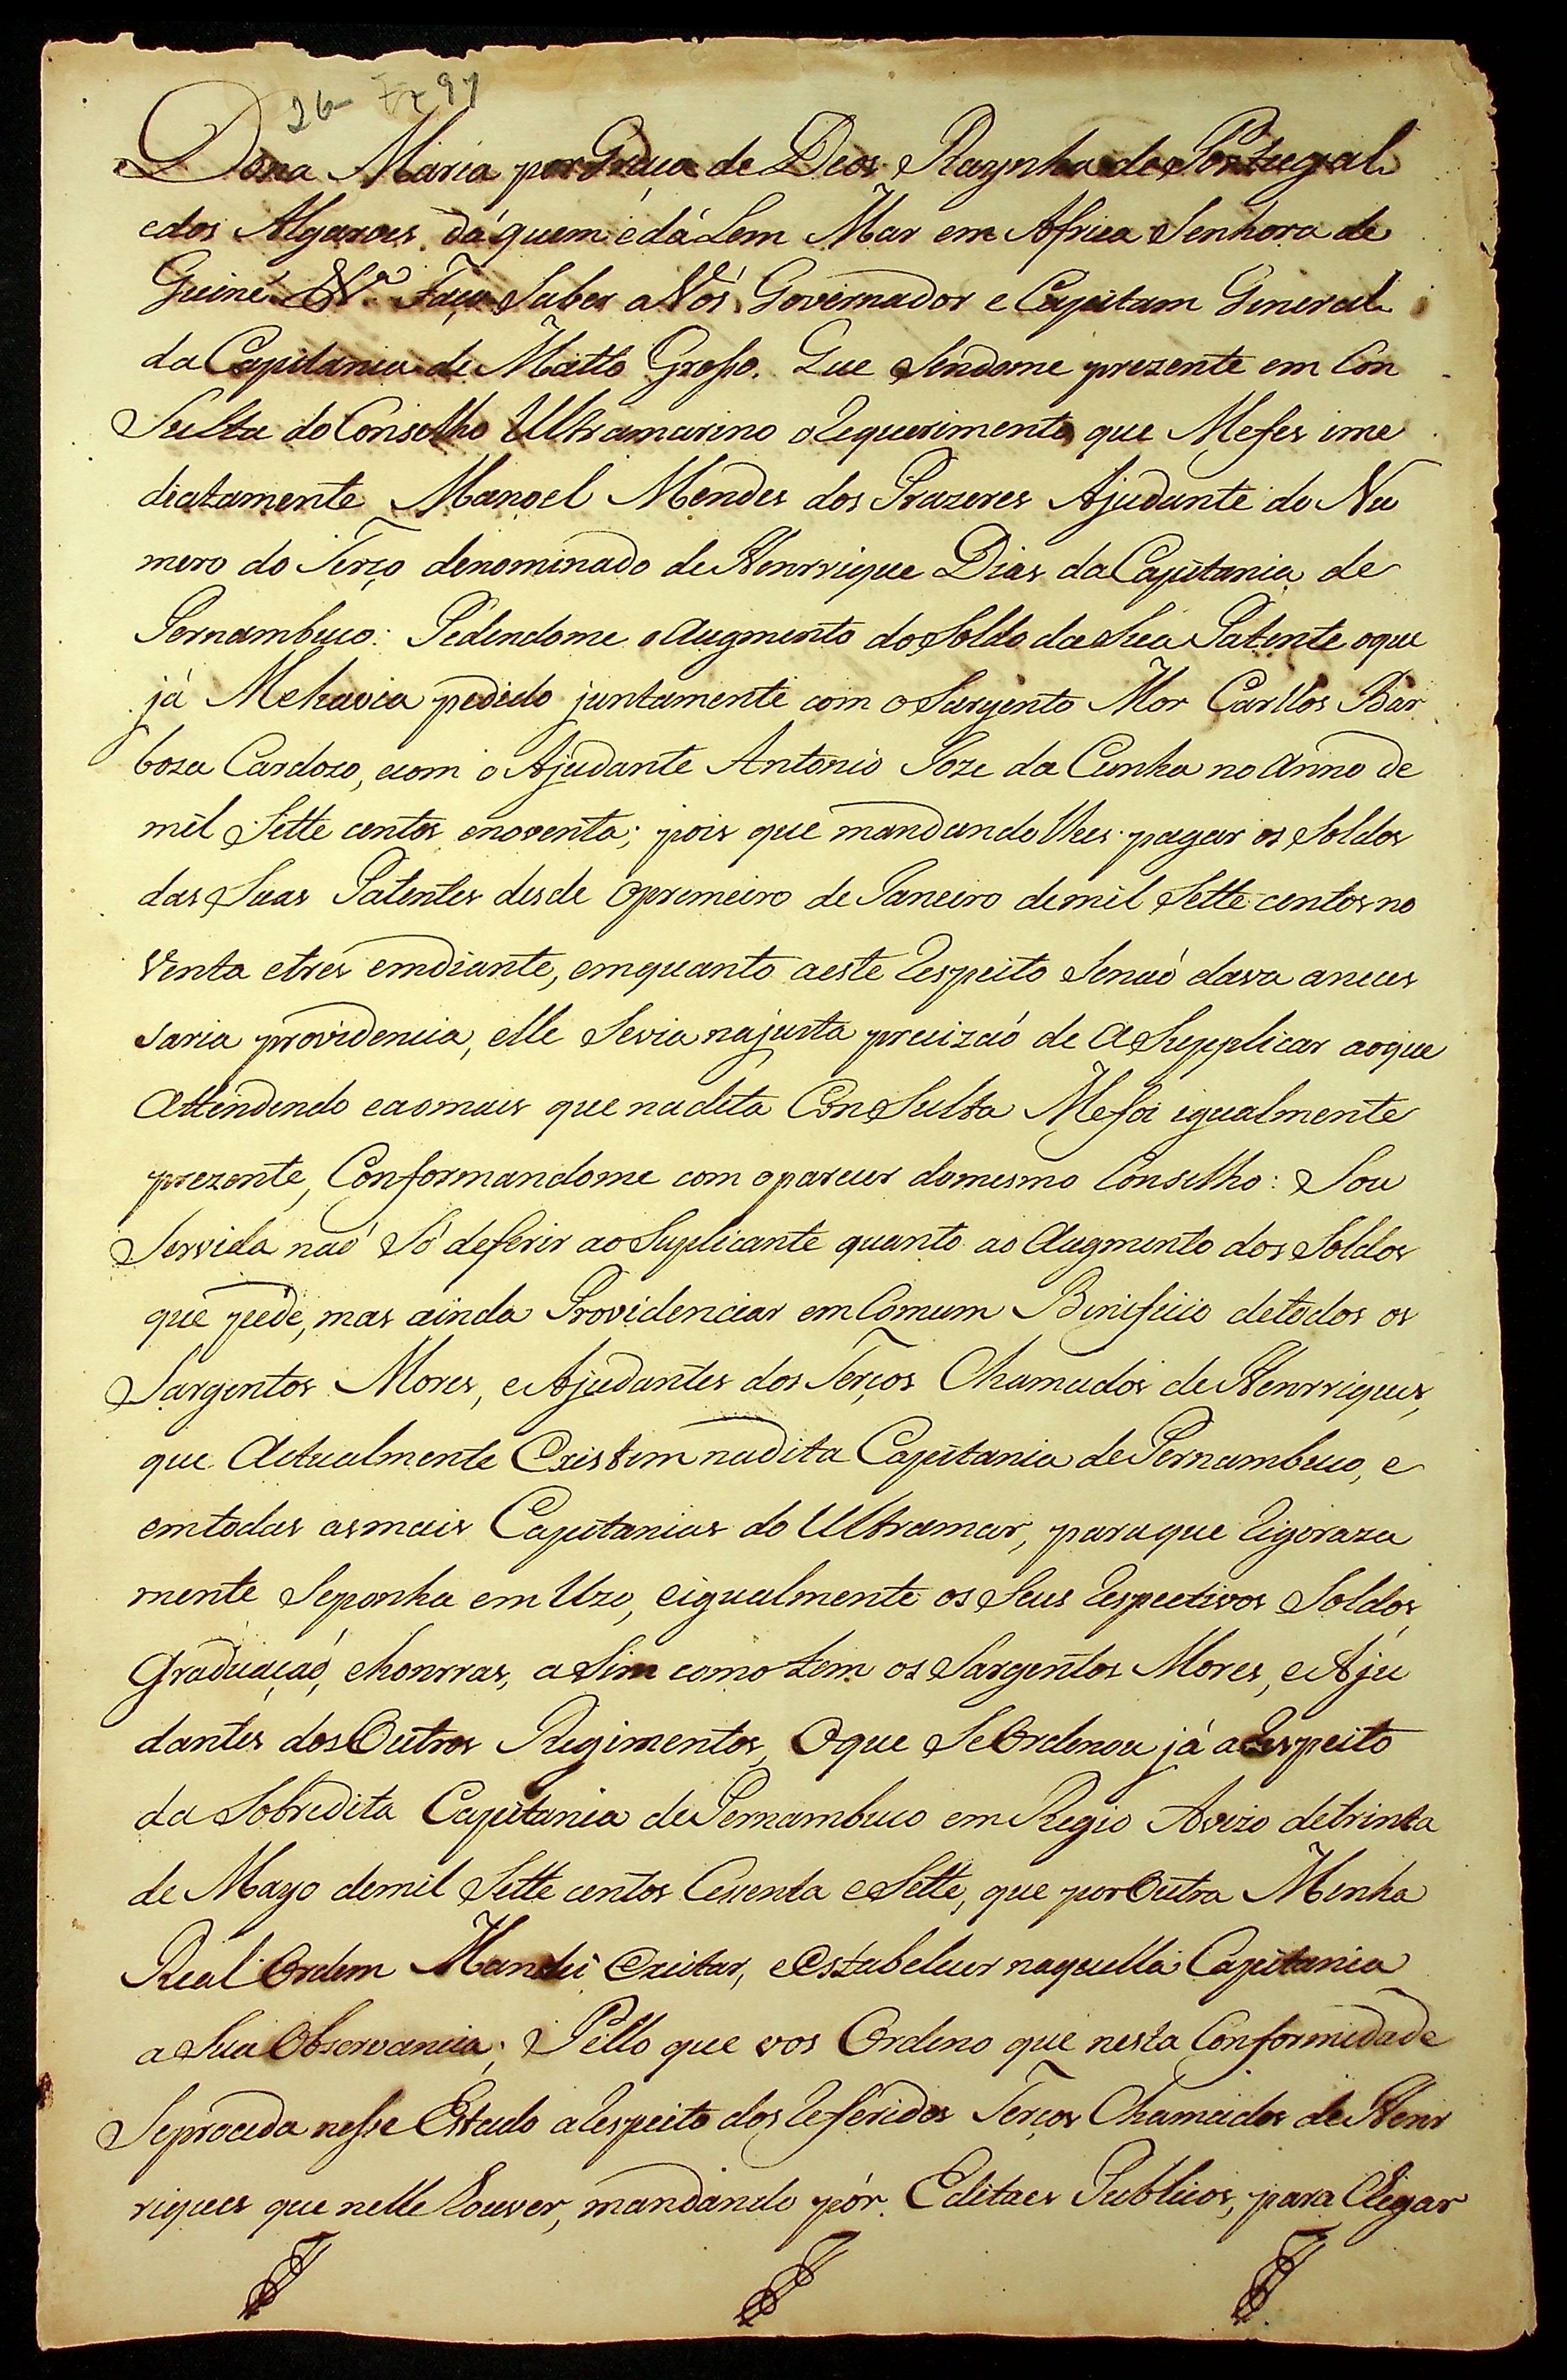 26 Fr 97
Dona Maria por Graça de Deos Raynha de Portugal
e dos Algarves, dáquem e dáLem Mar em Africa Senhora de
Guiné &ª. Faço Saber a Vós, Governador e Capitam General
da Capitania de Matto Grosso. Que Sendome prezente em Con
Sulta do Conselho Ultramarino o Requerimento que Mefes ime
diatamente Manoel Mendes dos Prazeres Ajudante do Nu
mero do Terço denominado de Henrrique Dias da Capitania de
Pernambuco: Pedindome o augmento do Soldo da Sua Patente o que
já Mehavia pedido juntamente com o Sargento Mor Carllos Bar
boza Cardozo, ecom o Ajudante Antonio Joze da Cunha no anno de
mil Sette centos enoventa; pois que mandando lhes pagar os Soldos
das Suas Patentes desde oprimeiro de Janeiro demil Sette centos no
Venta etres emdiante, emquanto aeste Respeito Senaó dava aneces
saria providencia, elle Sevia najusta precizaó de a Supplicar aoque
attendendo eaomais que nadita ConSulta Mefoi igualmente
prezente, Conformandome com oparecer domesmo Conselho: Sou
Servida naó Só deferir ao Suplicante quanto ao augmento dos Soldos
que pede, mas ainda Providenciar em Comum Binificio detodos os
Sargentos Mores, e Ajudantes dos Terços Chamados de Henrriques,
que actualmente Existem nadita Capitania de Pernambuco, e
emtodas asmais Capitanias do Ultramar, paraque Rigoraza
mente Seponha em Uzo, eigualmente os Seus Respectivos Soldos,
Graduaçaó, ehonrras, aSim como tem os Sargentos Mores, e Aju
dantes dos Outros Regimentos, Oque Se Ordenou já a Respeito
da Sobredita Capitania de Pernambuco em Regio Avizo detrinta
de Mayo demil Sette centos Cessenta e Sette, que por Outra Minha
Real Ordem Mandei Excitar, e Estabelecer naquella Capitania
a Sua Observancia; Pello que vos Ordeno que nesta Conformidade
Seproceda nesse Estado a Respeito dos Referidos Terços Chamados de Henr
riques que nelle houver, mandando pór Editaes Publicos, para Chegar